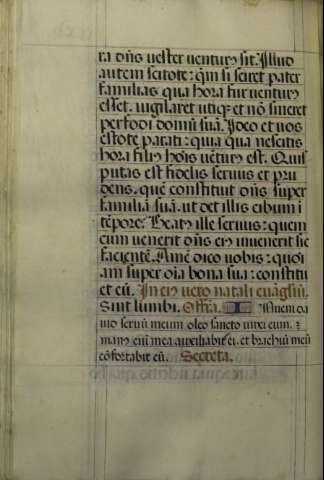 ra dn̄s uester uentur9 sit. Illud
autem scitote: qm̄ si sciret pater
familias qua hora fur uentur9
esset. uigilaret utiq3 et nō sineret
perfodi domū suā. Ideo et uos
estote parati: quia qua nescitis
hora fili9 hoı̄s uētur9 est. Quis
putas est fidelis seruus et pru
dens. quē constituit dn̄s super
familiā suā. ut det illis cibum i
tēpore. Beat9 ille seruus: quem
cum uenerit dn̄s ei9 inuenerit sic
facientē. Amē dico uobis: quoī
am super oīa bona sua: constitu
et eū. In ei9 uero natali euāgliū.
Sint lumbi. Offra. Inueni da
uid seruū meum oleo sancto unxi eum. 7
man9 eīn mea auxiliabit̄ ei. et brachiū meū
cōfortabit eū. Secreta.